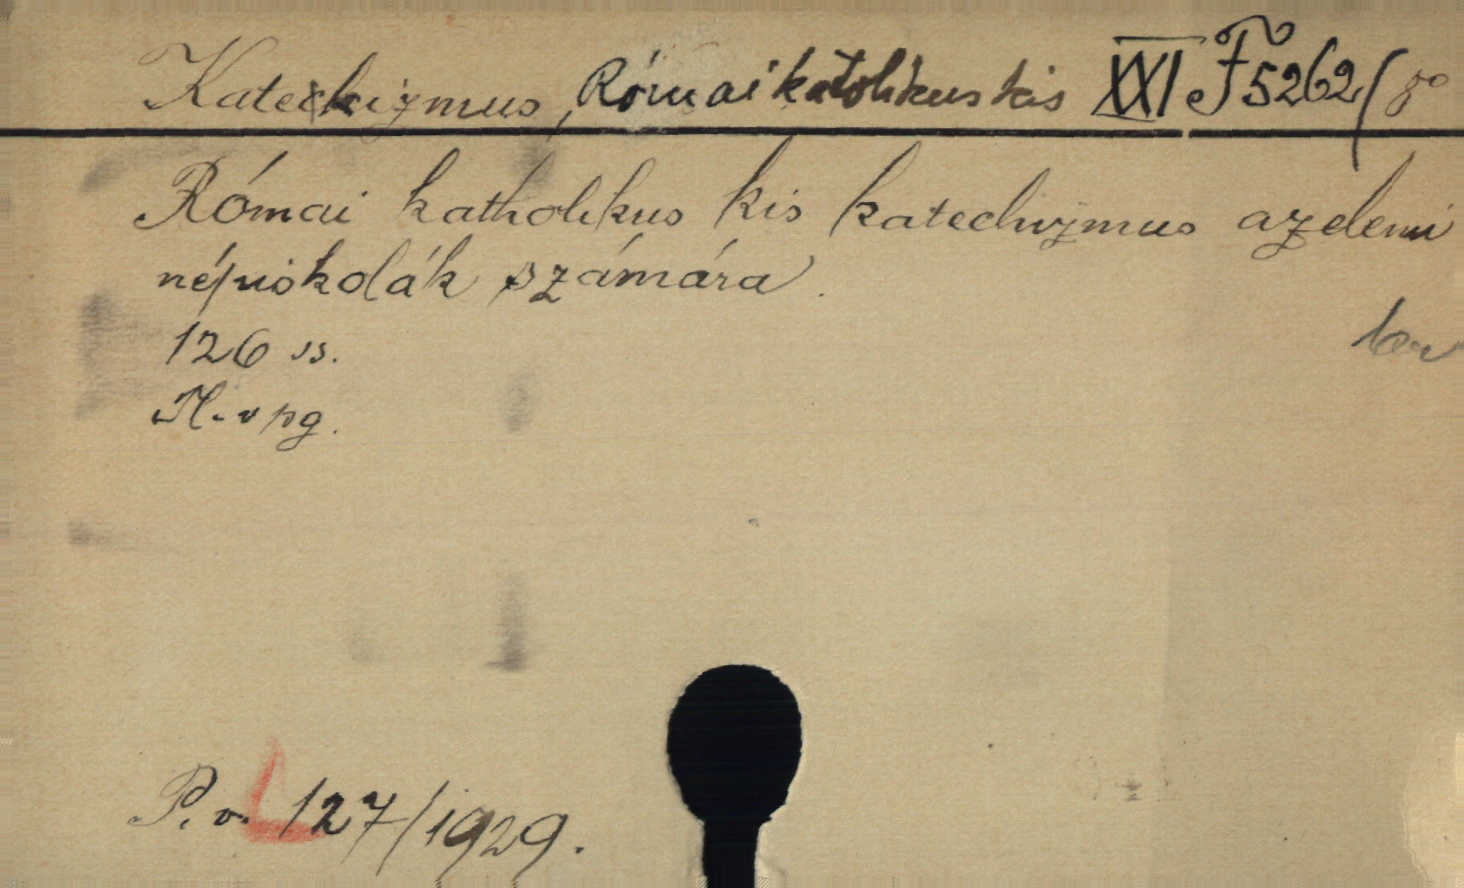 Katechizmus, Római katolikus kis XXI F 5262/8°
Római katholikus kis katechizmus az elemi
népiskolák számára.
126 ss.
P. v. 127/1929.